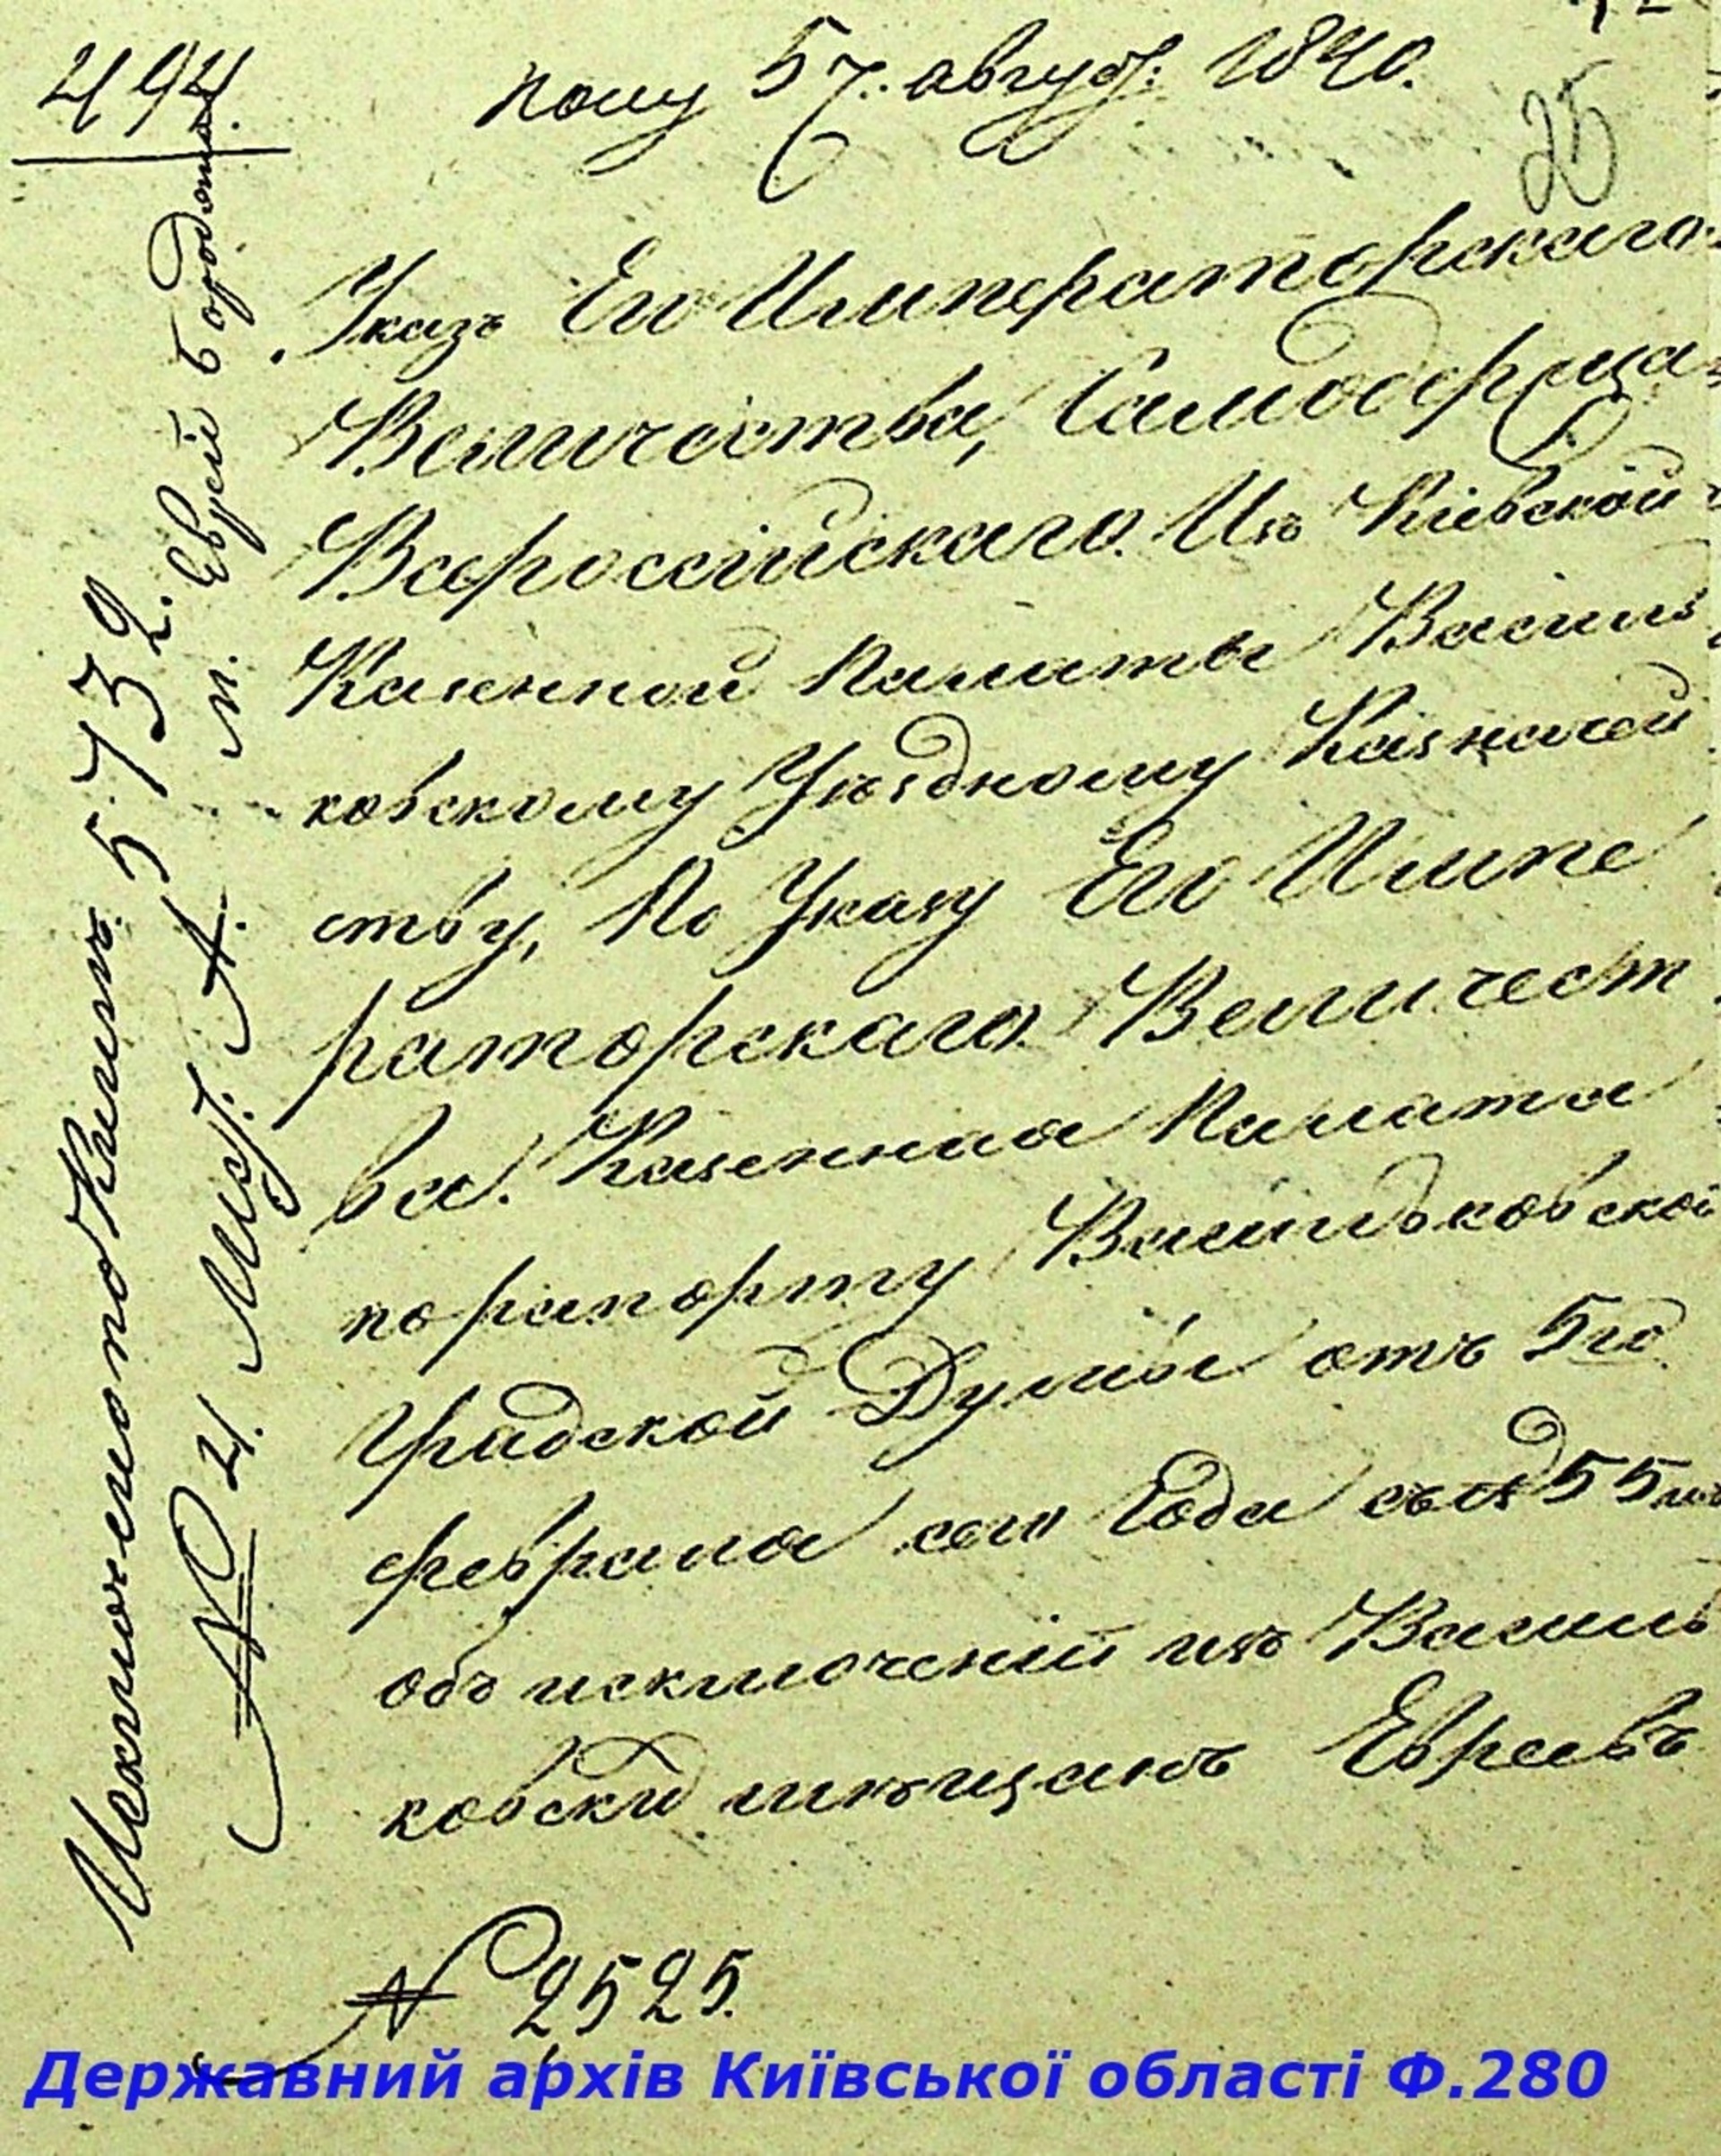 494
Полу 57. август: 1840.
25
Указъ Его Императорскаго
Величества, Самодержца
Всероссійскаго. Изъ Кіевской
Казенной Палаты Василь
ковскому Уѣздному Казначей
ству, По Указу Его Импе
раторскаго Величест
ва. Казенная Палата
по рапорту Васильковской
Градской Думы отъ 5го
февраля сего Года съ 55
объ исключеніи изъ Василь
ковски мѣщанъ Евреевъ
№ 2525.
Исключено по Книгѣ 5732.
№ 4. Мист. А. м. Еврей
Державний архів Київської області Ф.280